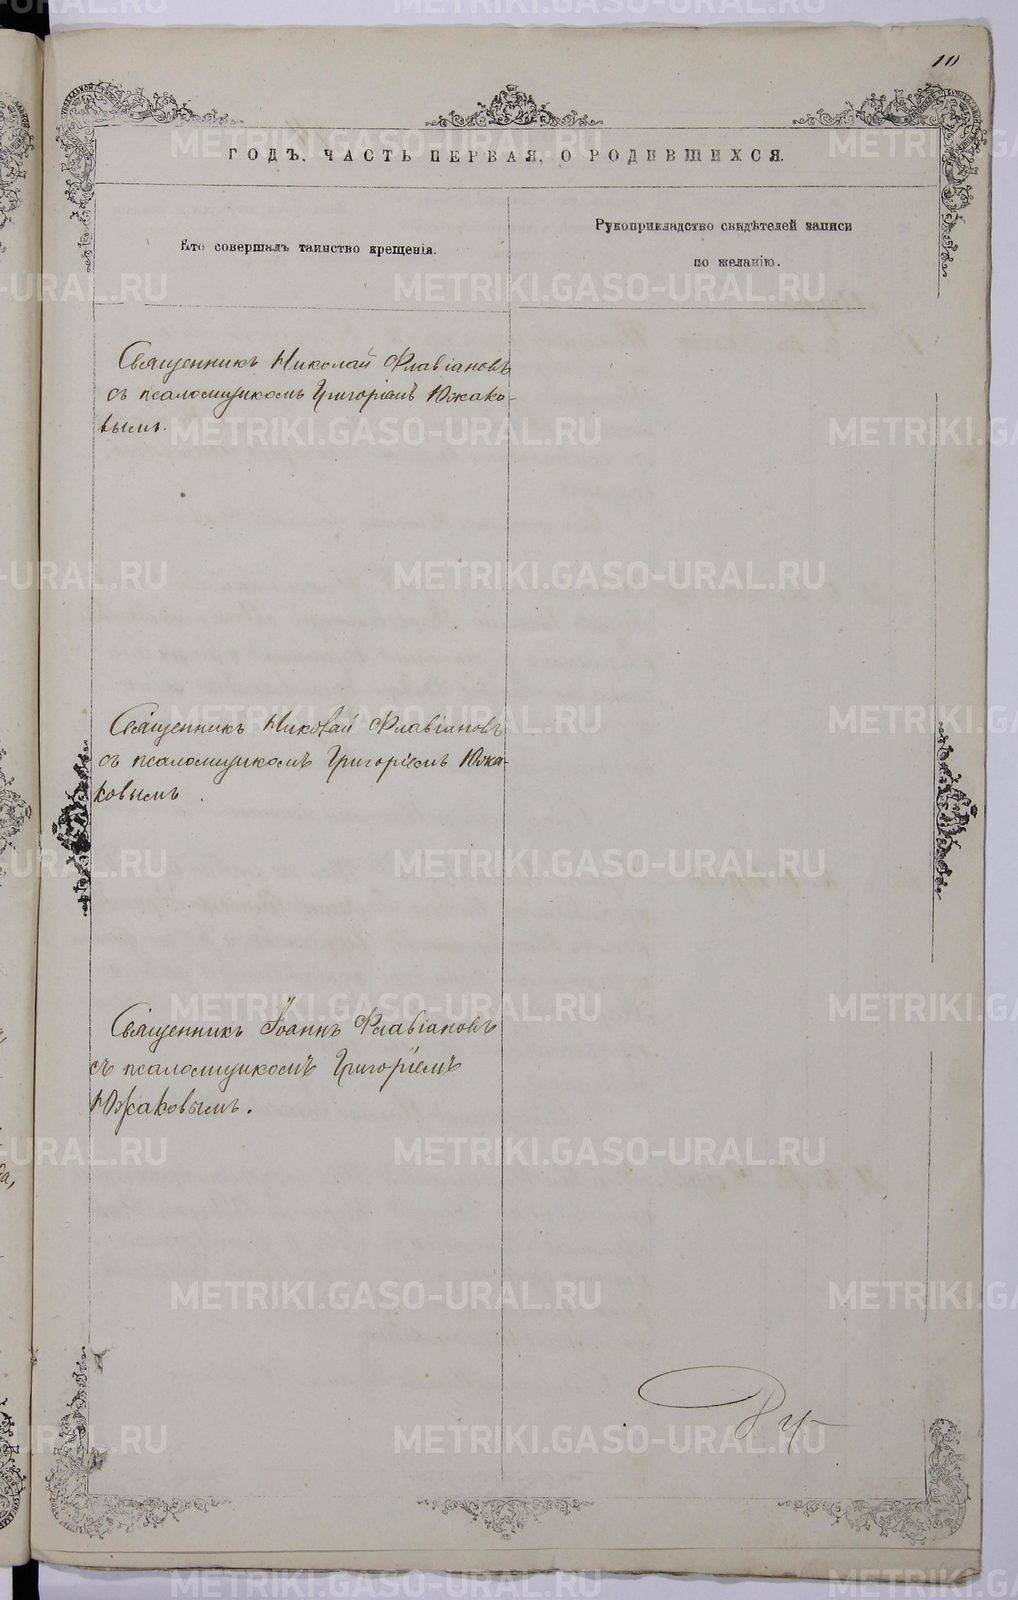 10
ГОДЪ, ЧАСТЬ ПЕРВАЯ, О РОДИВШИХСЯ.
Кто совершалъ таинство крещенія.
Рукоприкладство свидѣтелей записи
по желанію.
Священникъ Николай Флавіановъ
съ псаломщикомъ Григоріемъ Южако-
вымъ.
Священникъ Николай Флавіановъ
съ псаломщикомъ Григоріемъ Южа-
ковымъ.
Священникъ Іоаннъ Флавіановъ
съ псаломщикомъ Григоріемъ
Южаковымъ.
METRIKI.GASO-URAL.RU